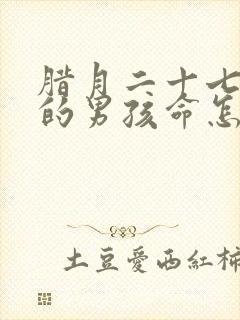 腊月二十七
的男孩命怎
土豆愛西紅柿